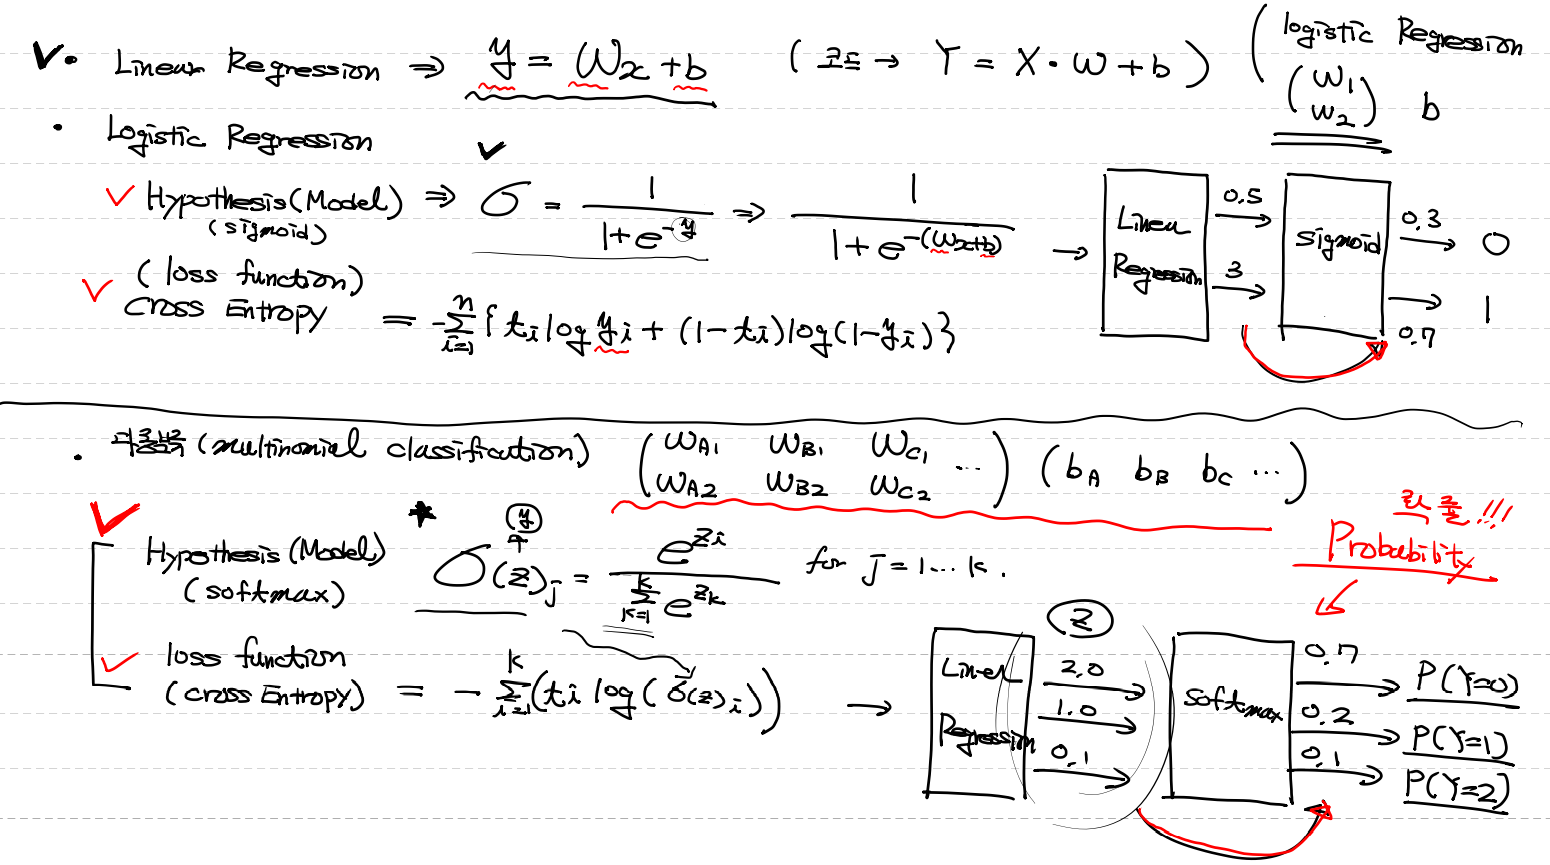 • Linear Regression ⇒ y = Wx + b ( 코드 → Y = X • W + b )
( logistic Regression
( W1 W2 ) b
• Logistic Regression
Hypothesis (Model) ⇒ σ = 1 / (1 + e^-y) ⇒ 1 / (1 + e^-(Wx+b)) →
(sigmoid)
Linear Regression
0.5
3
sigmoid
0.3 → 0
→ 1
0.7
( loss function )
Cross Entropy = - Σ_{i=1}^{n} { t_i log y_i + (1 - t_i) log(1 - y_i) }
• (multinomial classification)
( W_A1 W_B1 W_C1
W_A2 W_B2 W_C2 ... ) ( b_A b_B b_C ... )
확률!!!
Probability
Hypothesis (Model)
(softmax)
y
σ(z)_j = e^{z_i} / Σ_{k=1}^{k} e^{z_k} for j = 1 ... k.
loss function
(cross Entropy) = - Σ_{i=1}^{k} ( t_i log ( σ(z)_i ) ) →
z
Linear Regression
2.0
1.0
0.1
softmax
0.7 → P(Y=0)
0.2 → P(Y=1)
0.1 → P(Y=2)